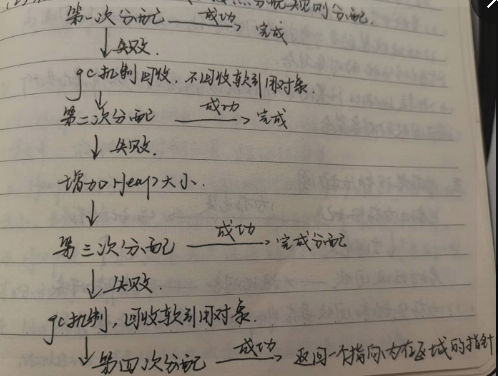 点分配规则分配.
第一次分配 成功 完成
↓失败.
gc机制回收,不回收软引用对象.
第二次分配 成功 完成
↓失败.
增加Heap大小.
↓
第三次分配 成功 完成分配
↓失败.
gc机制,回收软引用对象.
↓第四次分配 成功 返回一个指向内存区域的指针